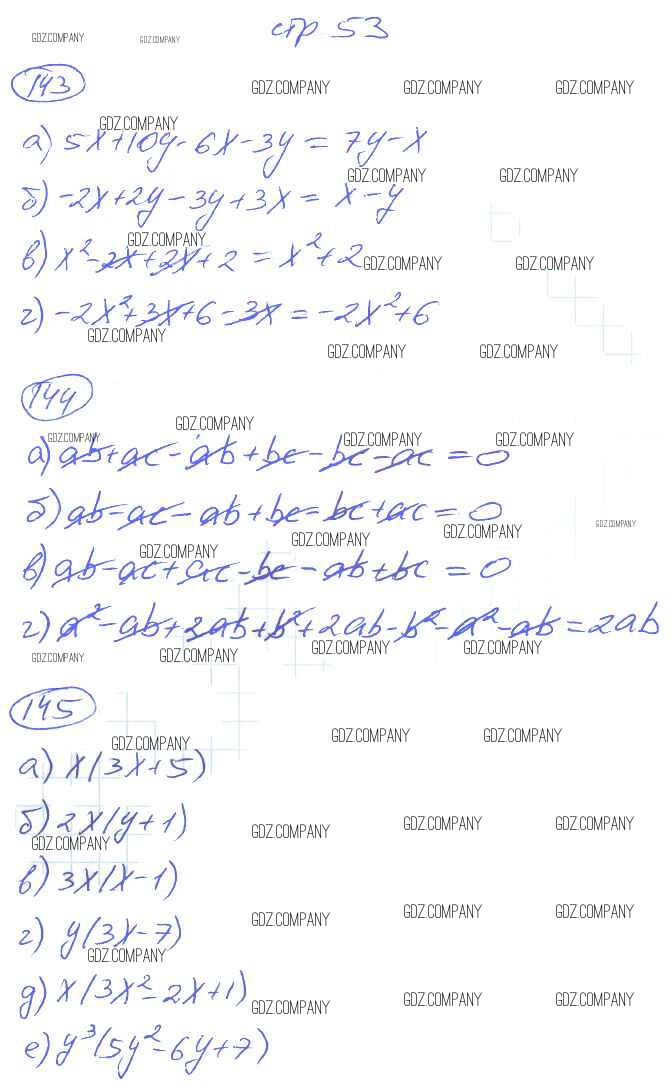 стр 53
GDZ.COMPANY GDZ.COMPANY
143
GDZ.COMPANY GDZ.COMPANY GDZ.COMPANY
GDZ.COMPANY
а) 5x+10y-6x-3y = 7y-x
GDZ.COMPANY GDZ.COMPANY
б) -2x+2y-3y+3x = x-y
GDZ.COMPANY
в) x²-2x+2x+2 = x²+2
GDZ.COMPANY GDZ.COMPANY
г) -2x²+3x+6-3x = -2x²+6
GDZ.COMPANY
GDZ.COMPANY GDZ.COMPANY
144
GDZ.COMPANY
GDZ.COMPANY GDZ.COMPANY GDZ.COMPANY
а) ab+ac-ab+bc-bc-ac = 0
б) ab-ac-ab+bc-bc+ac = 0
GDZ.COMPANY GDZ.COMPANY GDZ.COMPANY GDZ.COMPANY
в) ab-ac+ac-bc-ab+bc = 0
г) a²-ab+2ab+b²+2ab-b²-a²-ab = 2ab
GDZ.COMPANY GDZ.COMPANY GDZ.COMPANY GDZ.COMPANY
145
GDZ.COMPANY GDZ.COMPANY GDZ.COMPANY
а) x(3x+5)
б) 2x(y+1)
GDZ.COMPANY GDZ.COMPANY GDZ.COMPANY GDZ.COMPANY
в) 3x(x-1)
GDZ.COMPANY GDZ.COMPANY GDZ.COMPANY
г) y(3x-7)
GDZ.COMPANY
д) x(3x²-2x+1)
GDZ.COMPANY GDZ.COMPANY GDZ.COMPANY
е) y³(5y²-6y+7)